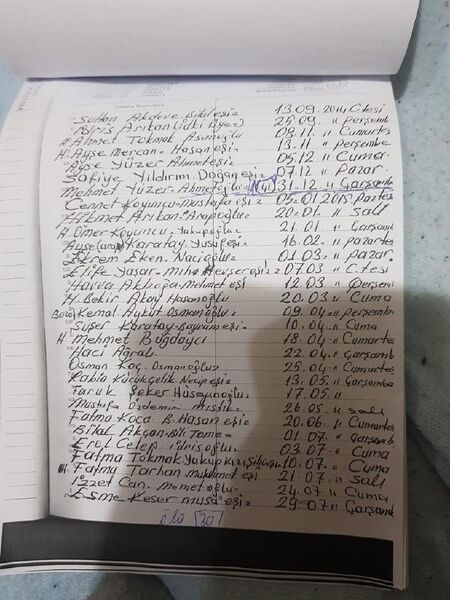 Sultan Akdeve Bilal eşi= 13.09.2014 C.tesi
İdris Arıkan 25.09. "
H. Ahmet Tokmak 08.11. " Cumartes
H. Ayşe Mercan= Hasan eşi= 13.11. " perşemb
Ayşe Yüzer Ahmet eşi= 05.12 " Cuma
Safiye Yıldırım Doğan eşi= 07.12 " Pazar.
Mehmet Yüzer. Ahmetoğlu= (41) 31.12. " Çarşamb
Cennet Koyuncu= Mustafa eşi= 05-01 2015 Paztes
Hikmet Arıkan= Arapoğlu= 20-01. " Salı
H. Ömer Koyuncu= Yakupoğlu= 21.01. " Çarşamb
Ayşe Karatay. Yusuf eşi= 16.02. " pazartes
Ekrem Eken. Nacioğlu= 01.03 " pazar.
Elife Yaşar= 07.03 " C.tesi
Havva Akboğa= Mehmet eşi 12.03 " perşemb
H. Bekir Akay Hasanoğlu 20.03 " Cuma
Kemal Aykut Osmanoğlu= 09.04 " perşemb
Karatay= Bayram eşi= 10.04. " Cuma
H. Mehmet Buğdaycı 18.04 " Cumartes
Hacı Ağralı. 22.04. " Çarşamb
Osman Koç. Osmanoğlu= 25.04 - " Cumartes
Rabia Küçükçelik Necip eşi= 13.05. " Çarşamba
Faruk Şeker Hüseyinoğlu= 17.05 "
Mustafa Özdemir 26.05. " Salı
Fatma Koca B. Hasan eşi 20.06 " Cumartes
Bilal Akçan= 01.07. " Çarşamb
Erol Celep. 03.07. " Cuma
Fatma Tokmak Yakup kızı 10.07. " Cuma
H. Fatma Tarhan Muhammet eşi 21.07 " Salı
İzzet Can. Memetoğlu= 24.07. " Cuma
Esme Keser Musa eşi= 29.07 " Çarşamb
30